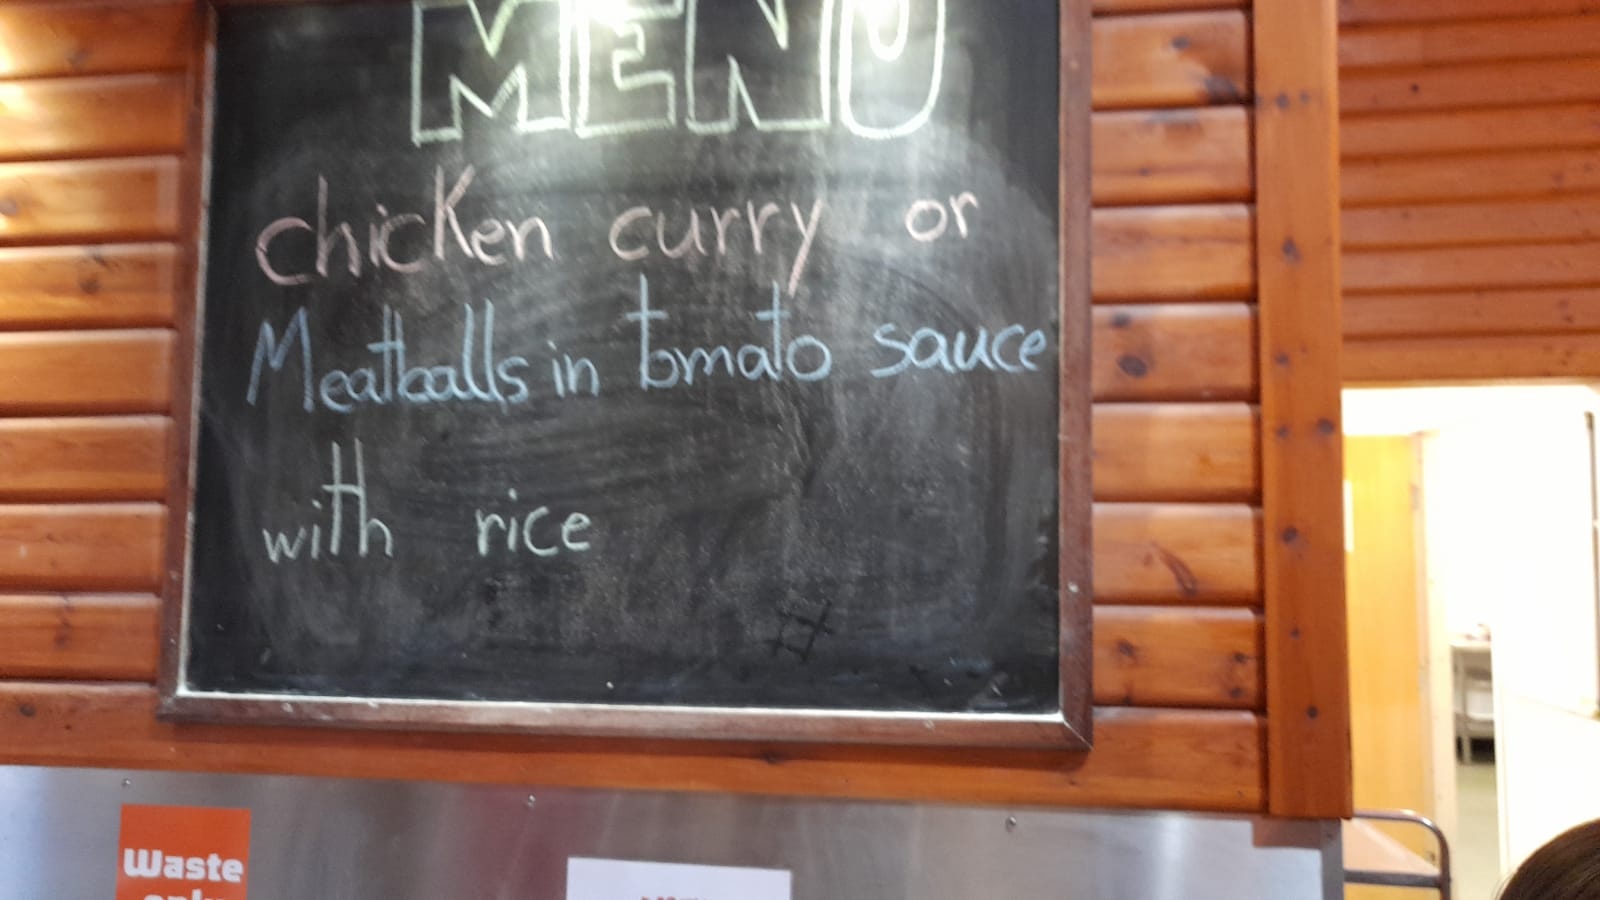 MENU
chicken curry or
Meatballs in tomato sauce
with rice
#
Waste
only